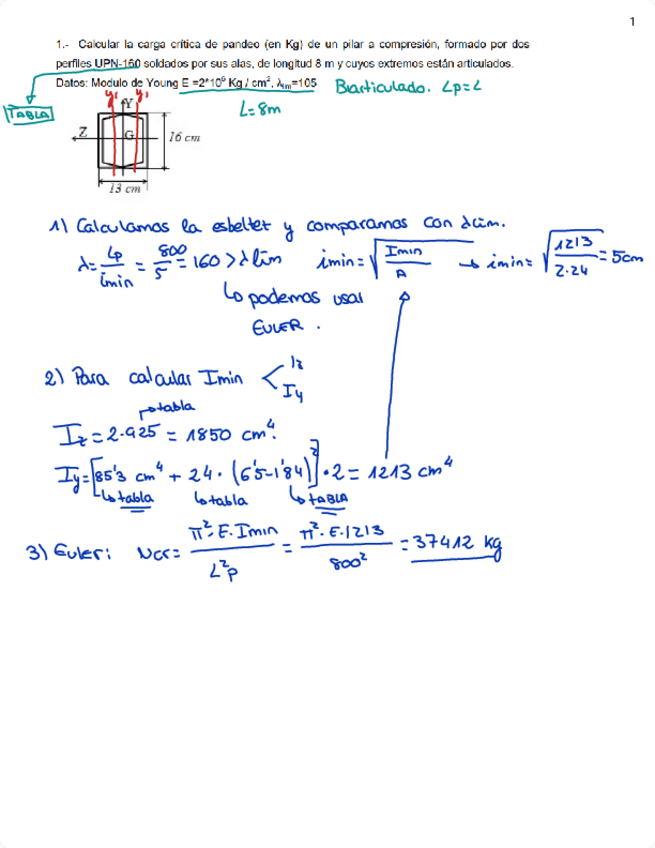 1
1.- Calcular la carga crítica de pandeo (en Kg) de un pilar a compresión, formado por dos
perfiles UPN-160 soldados por sus alas, de longitud 8 m y cuyos extremos están articulados.
Datos: Modulo de Young E =2*10⁶ Kg / cm², λlim=105 Biarticulado. Lp=L
TABLA
L=8m
y' Y y'
Z G 16 cm
13 cm
1) Calculamos la esbeltez y comparamos con λlim.
λ= Lp/imin = 800/5 = 160 > λlim imin= √(Imin/A) → imin= √(1213/2·24) = 5cm
↳ podemos usar
EULER.
2) Para calcular Imin < Iz
Iy
tabla
Iz = 2·925 = 1850 cm⁴.
Iy=[85'3 cm⁴ + 24·(6'5-1'84)]²·2 = 1213 cm⁴
↳tabla ↳tabla ↳TABLA
3) Euler: Ncr= π²·E·Imin/L²p = π²·E·1213/800² = 37412 kg